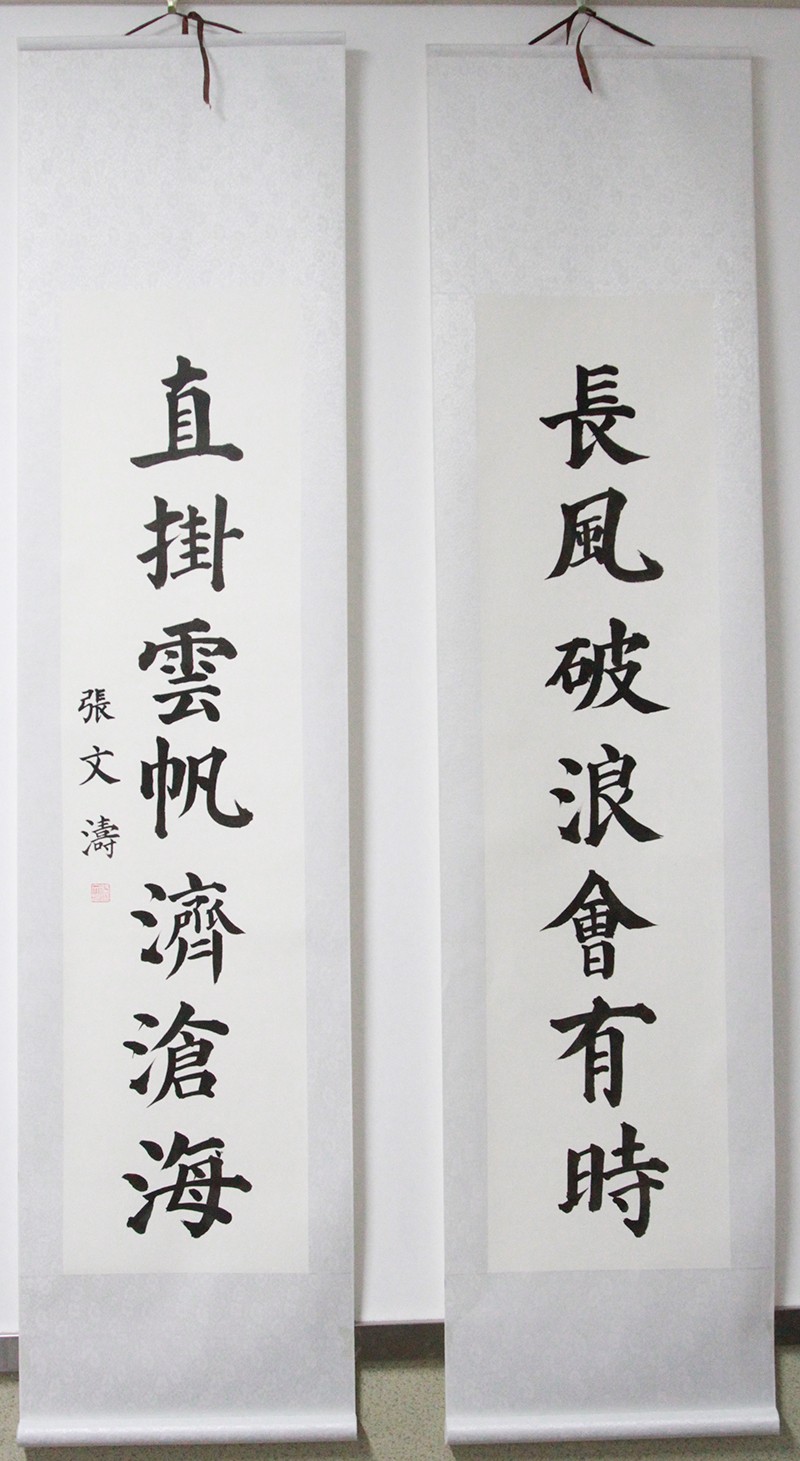 長風破浪會有時
直掛雲帆濟滄海
張文濤